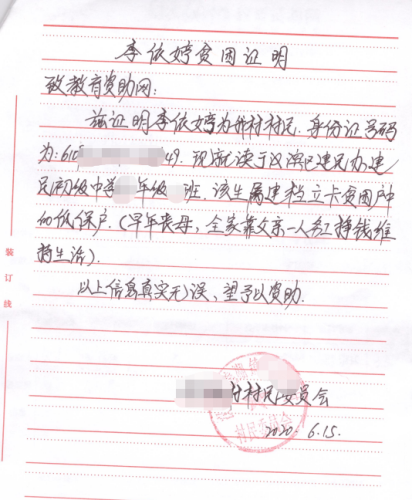 李依娉贫困证明
致教育资助网:
兹证明李依娉为我村村民,身份证号码
为:610 49. 现就读于汉滨区建民办建
民初级中学 年级 班. 该生属建档立卡贫困户中
的低保户.(早年丧母,全家靠父亲一人务工挣钱维
持生活).
以上信息真实无误,望予以资助.
村村民委员会
村民委员会
2020.6.15.
装订线